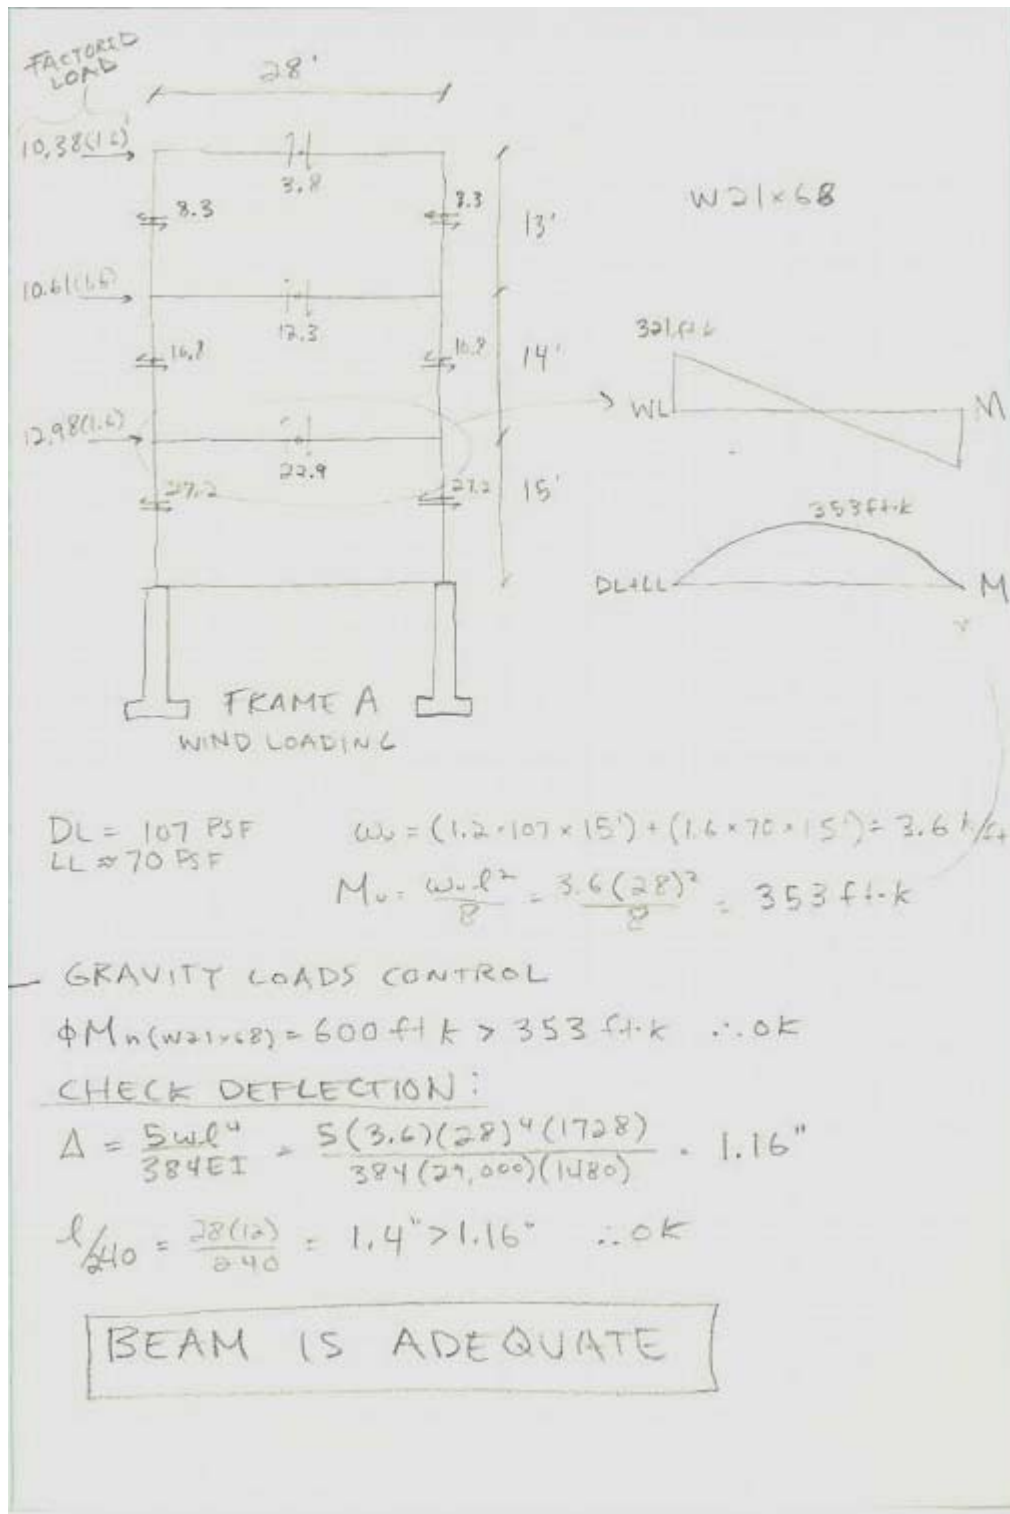 FACTORED
LOAD
28'
10.38(1.6)
3.8
8.3
8.3
13'
W21x68
10.61(1.6)
12.3
16.8
16.8
14'
321 ft·k
WL
M
12.98(1.6)
22.9
27.2
27.2
15'
353 ft·k
DL+LL
M
FRAME A
WIND LOADING
DL = 107 PSF
LL ≈ 70 PSF
ωu = (1.2·107×15') + (1.6×70×15') = 3.6 k/ft
Mu = ωuℓ²/8 = 3.6(28)²/8 = 353 ft·k
— GRAVITY LOADS CONTROL
ϕMn(W21x68) = 600 ft k > 353 ft·k ∴ OK
CHECK DEFLECTION:
Δ = 5wℓ⁴/384EI = 5(3.6)(28)⁴(1728)/384(29,000)(1480) = 1.16"
ℓ/240 = 28(12)/240 = 1.4" > 1.16" ∴ OK
BEAM IS ADEQUATE